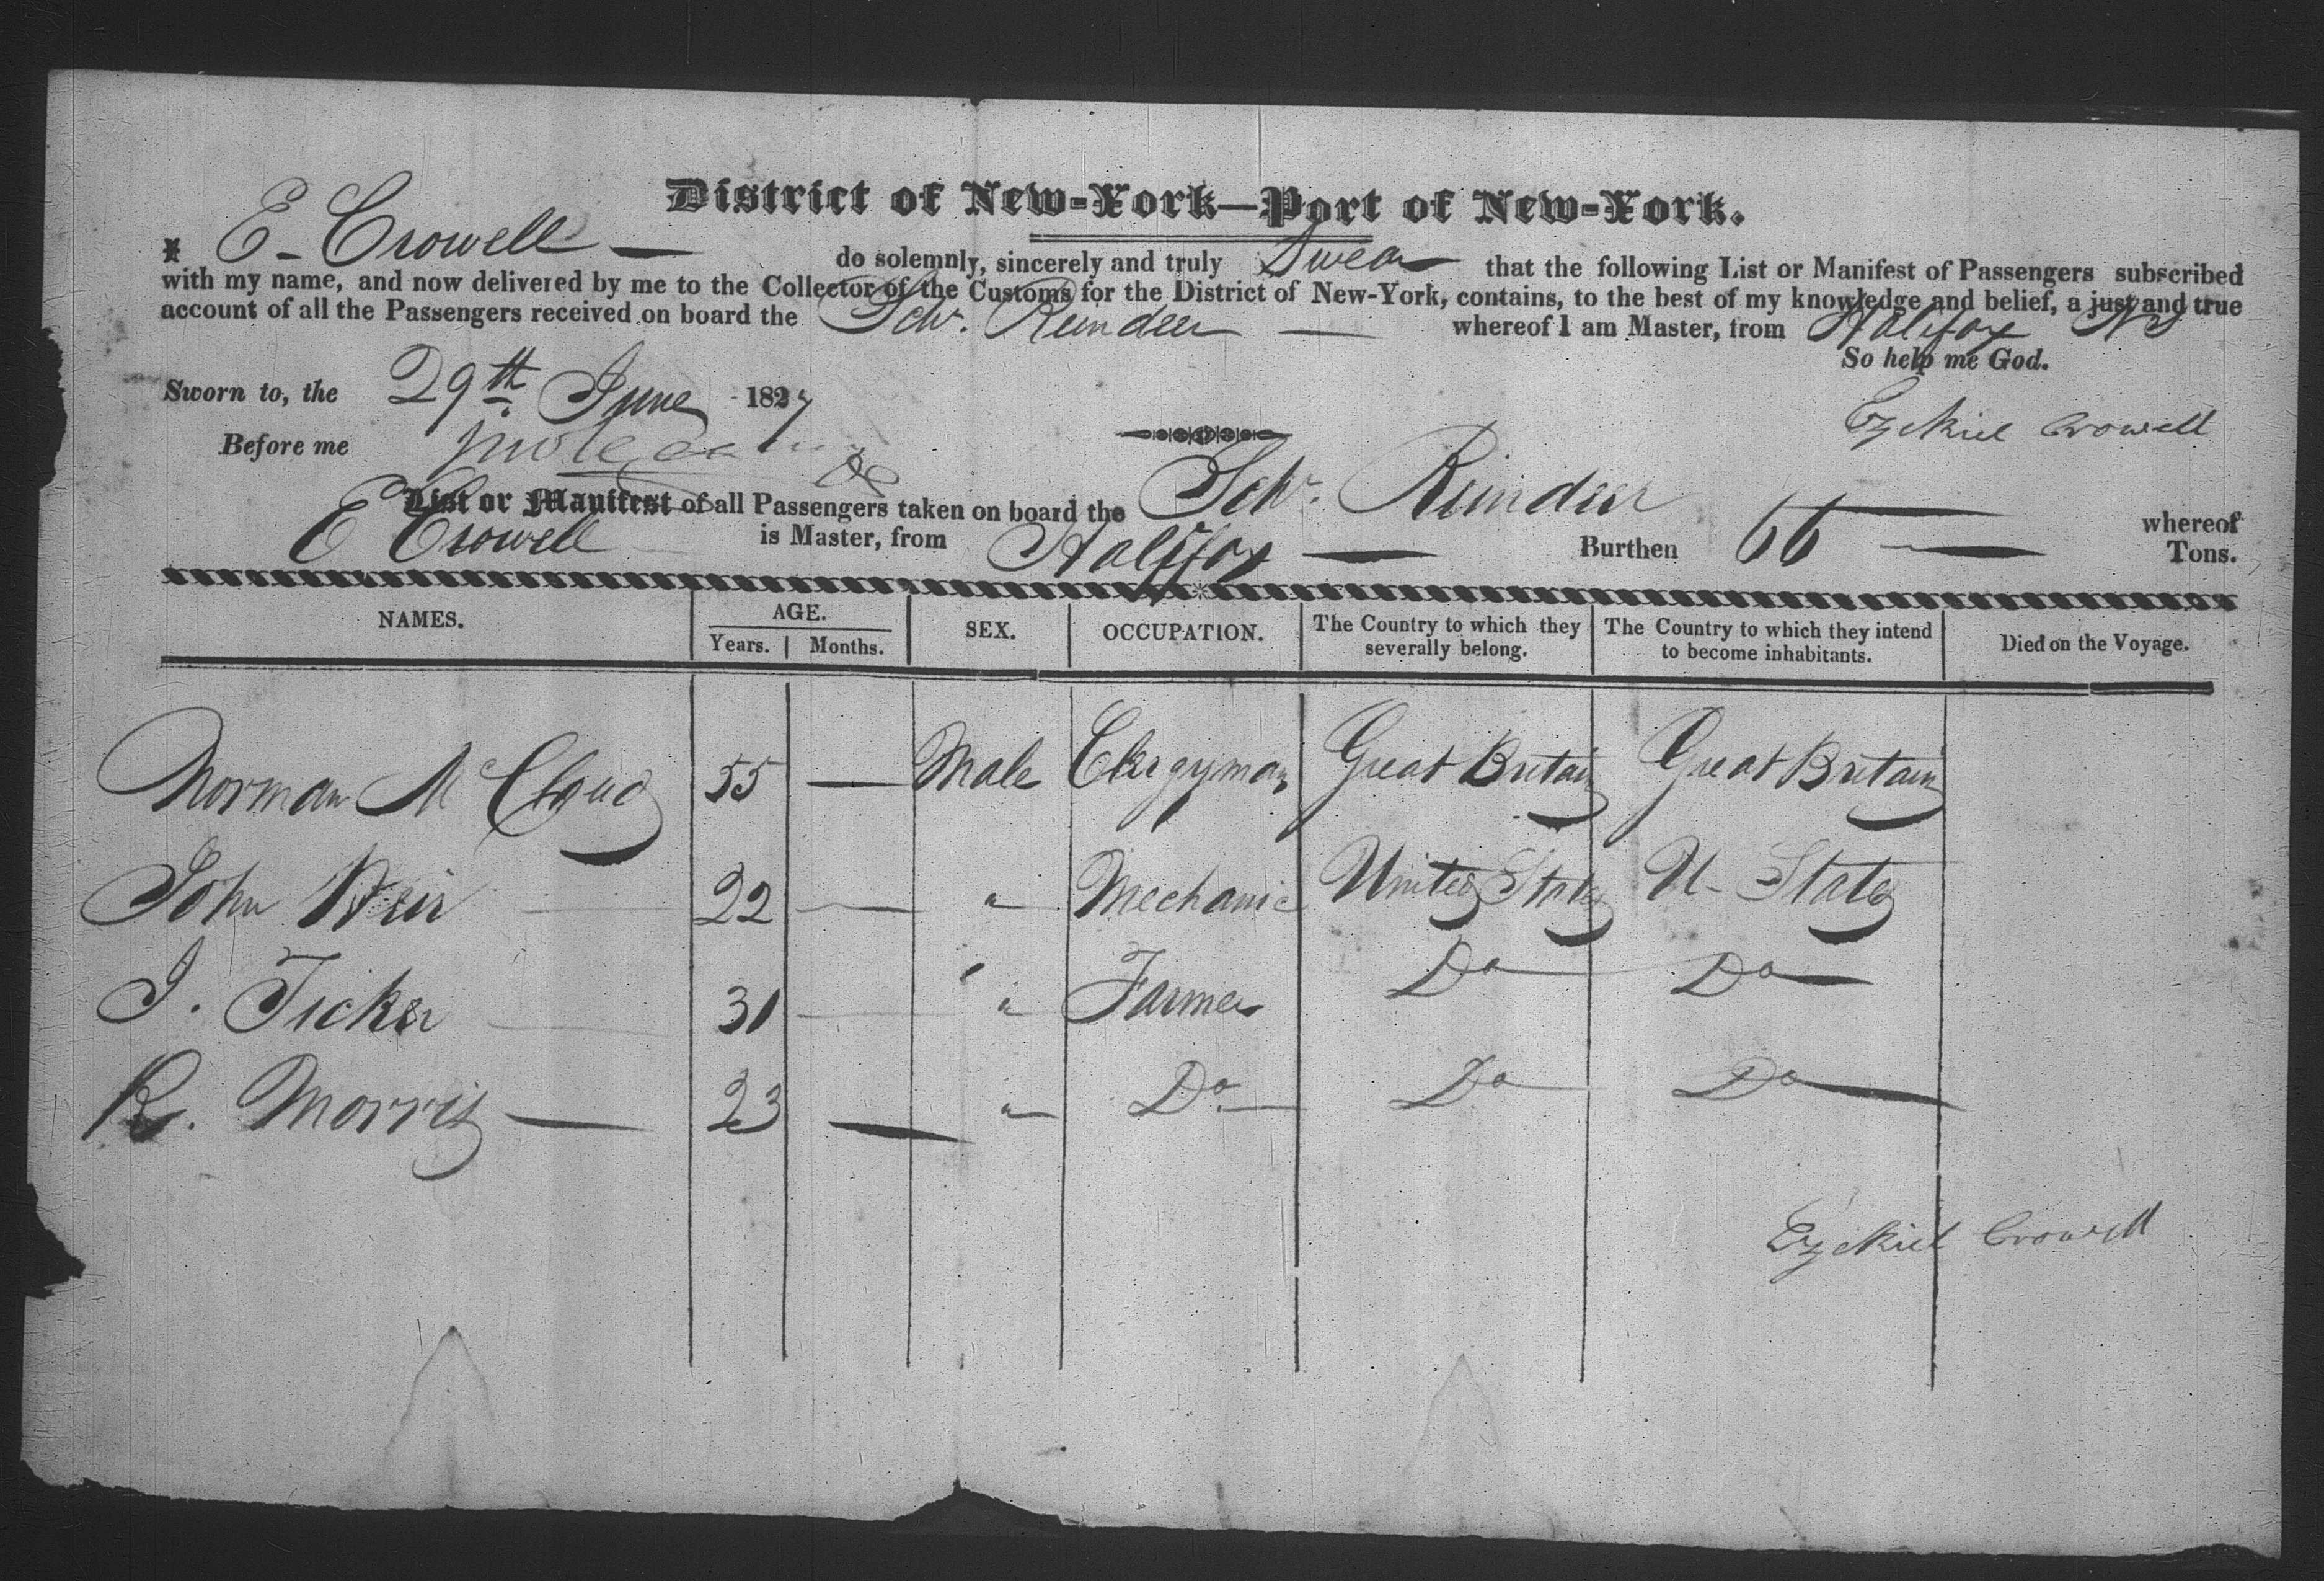 District of New-York—Port of New-York.
I E - Crowell — do solemnly, sincerely and truly Swear that the following List or Manifest of Passengers subscribed
with my name, and now delivered by me to the Collector of the Customs for the District of New-York, contains, to the best of my knowledge and belief, a just and true
account of all the Passengers received on board the Schr. Reindeer — whereof I am Master, from Halifax NS
So help me God.
Sworn to, the 29th June 1827
Ezekiel Crowell
Before me
List or Manifest of all Passengers taken on board the Schr. Reindeer — whereof
E Crowell is Master, from Halifax — Burthen 66 — Tons.
NAMES. AGE. Years. Months. SEX. OCCUPATION. The Country to which they severally belong. The Country to which they intend to become inhabitants. Died on the Voyage.
Norman McCloud 55 — Male Clergyman Great Britain Great Britain
John Weir 22 — " Mechanic United States U - States
J. Ticker 31 — " Farmer Do Do
R. Morris — 23 — " Do Do Do
Ezekiel Crowell